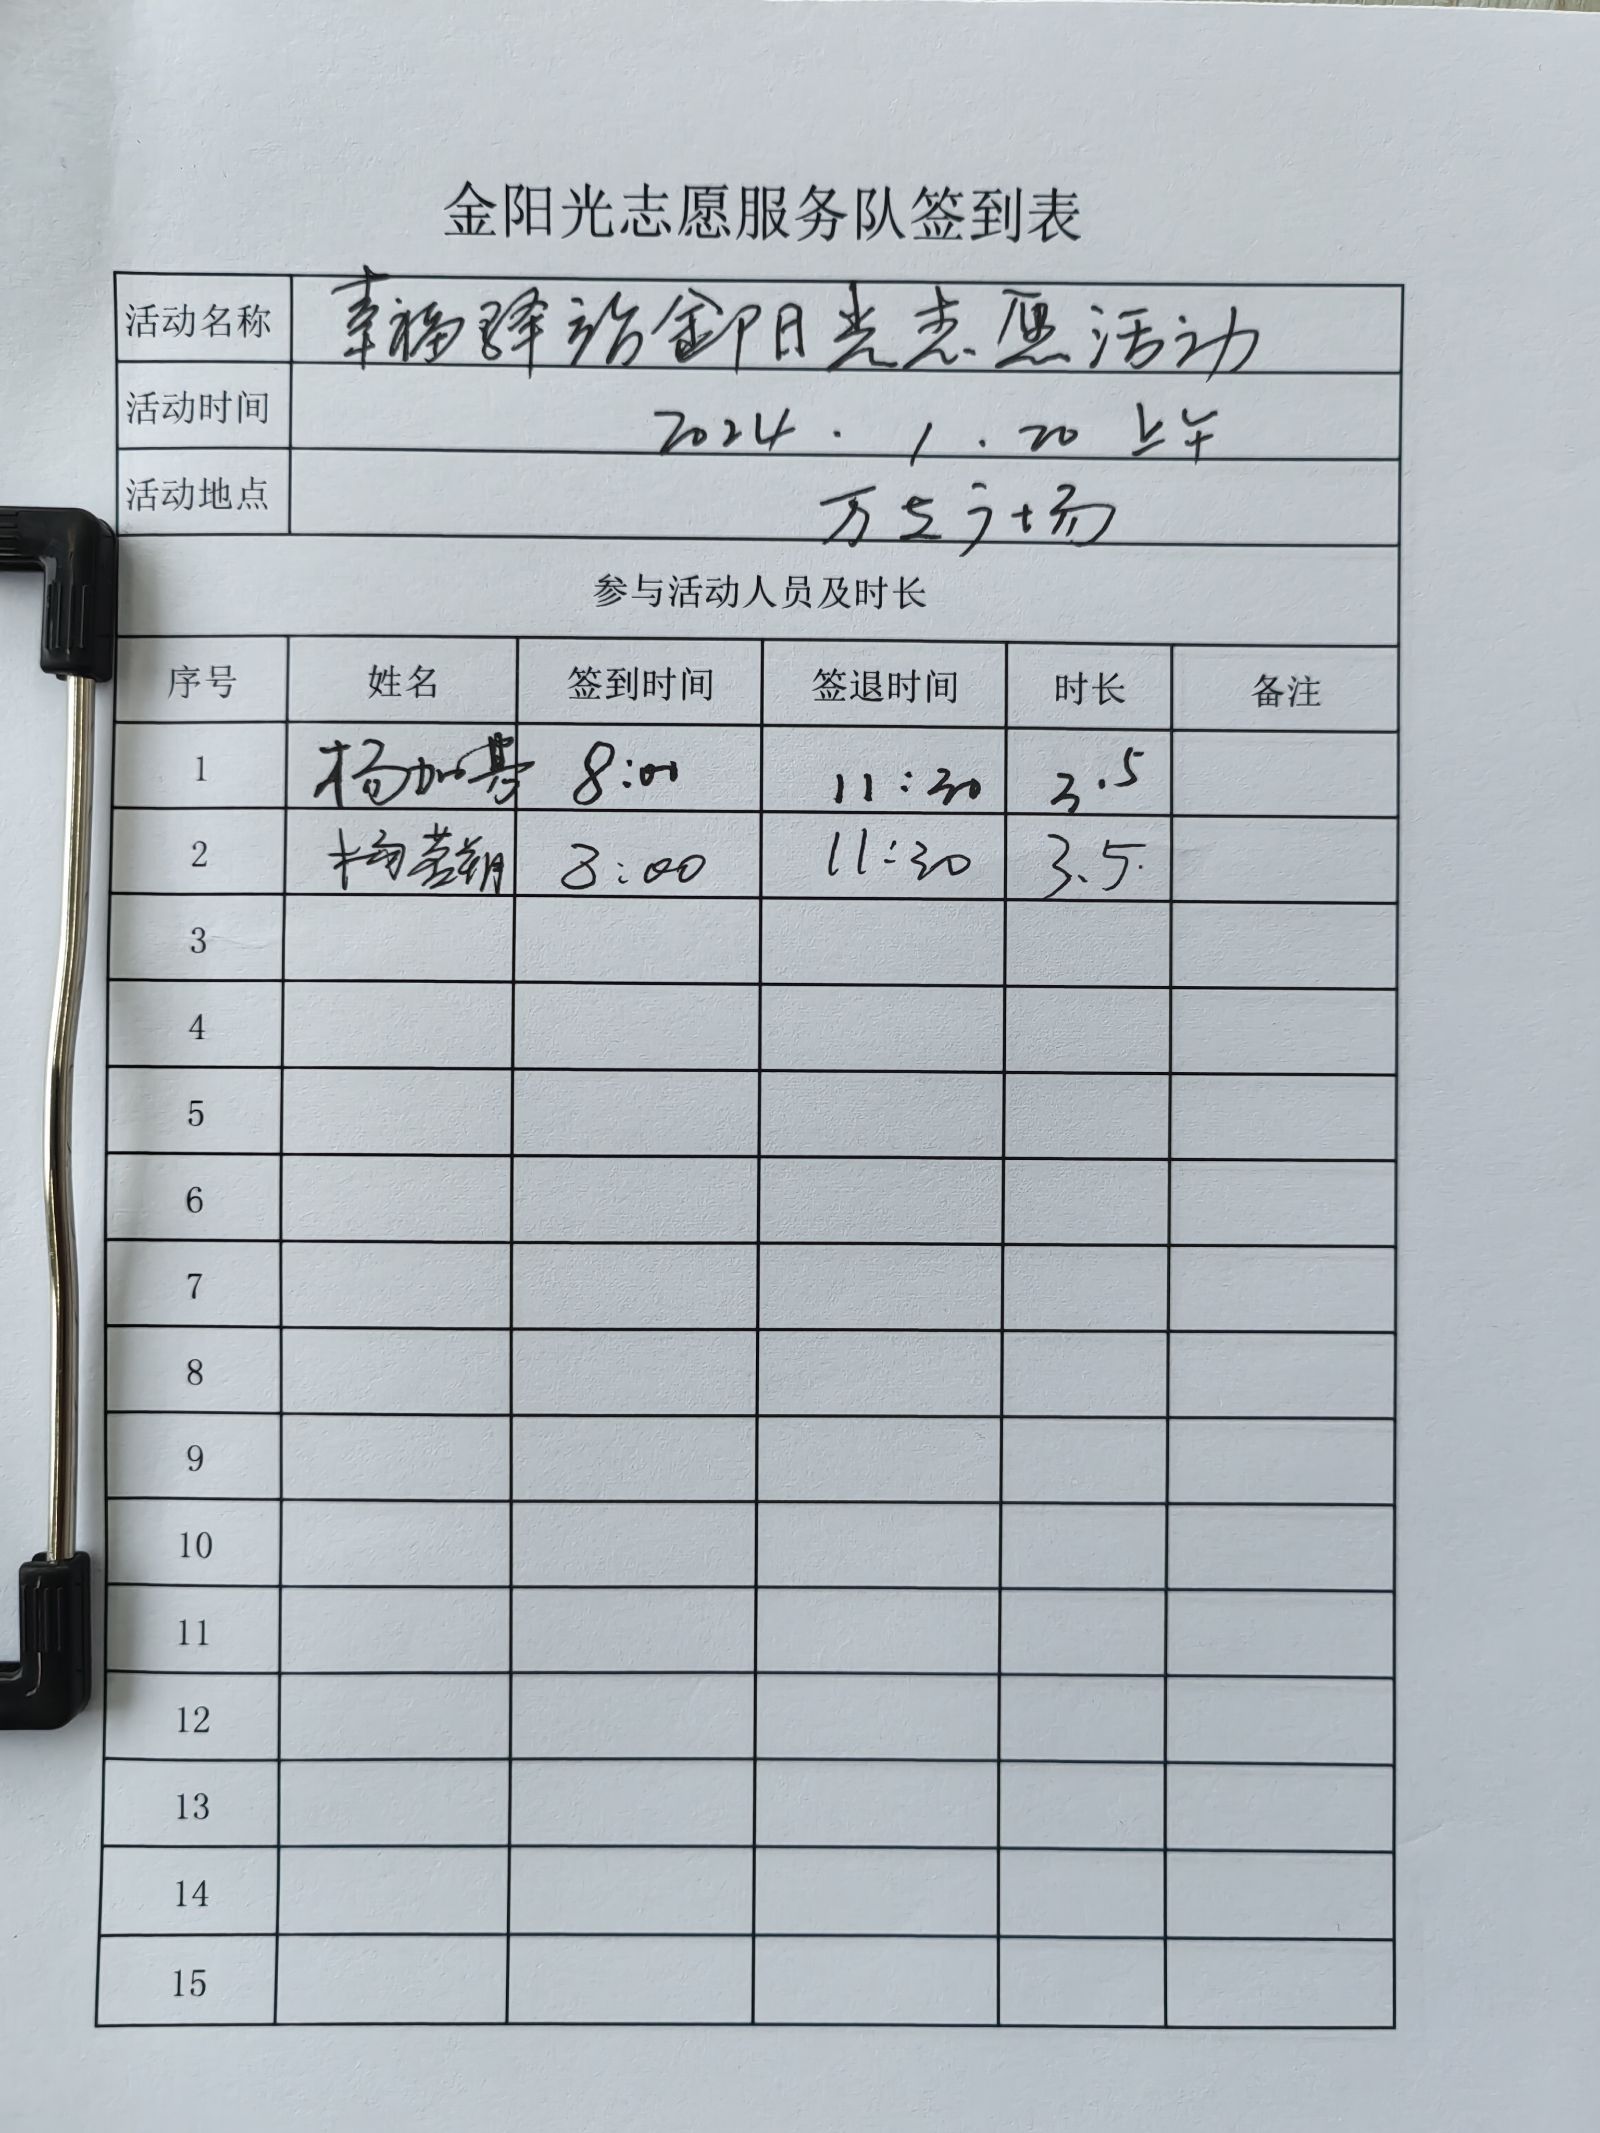 金阳光志愿服务队签到表
活动名称 幸福驿站金阳光志愿活动
活动时间 2024.1.20 上午
活动地点 万达广场
参与活动人员及时长
序号 姓名 签到时间 签退时间 时长 备注
1 杨加 8:00 11:30 3.5
2 8:00 11:30 3.5
3
4
5
6
7
8
9
10
11
12
13
14
15